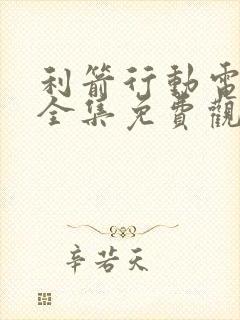 利箭行動電
全集免費觀
辛若天